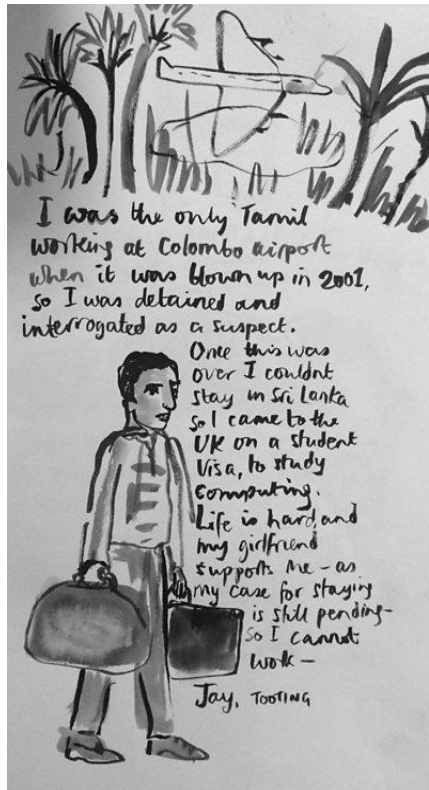 I was the only Tamil
working at Colombo airport
when it was blown up in 2001,
so I was detained and
interrogated as a suspect.
Once this was
over I couldnt
stay in Sri Lanka
so I came to the
UK on a student
Visa, to study
computing.
Life is hard, and
my girlfriend
supports me - as
my case for staying
is still pending -
so I cannot
work -
Jay, TOOTING